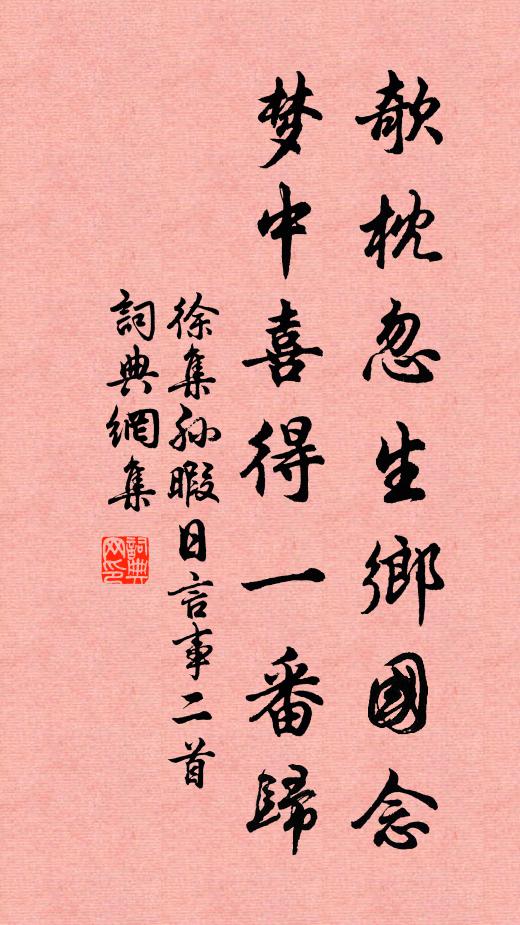 欹枕忽生鄉國念
梦中喜得一番歸
徐集孙暇日言事二首
詞典網集
詞典网印